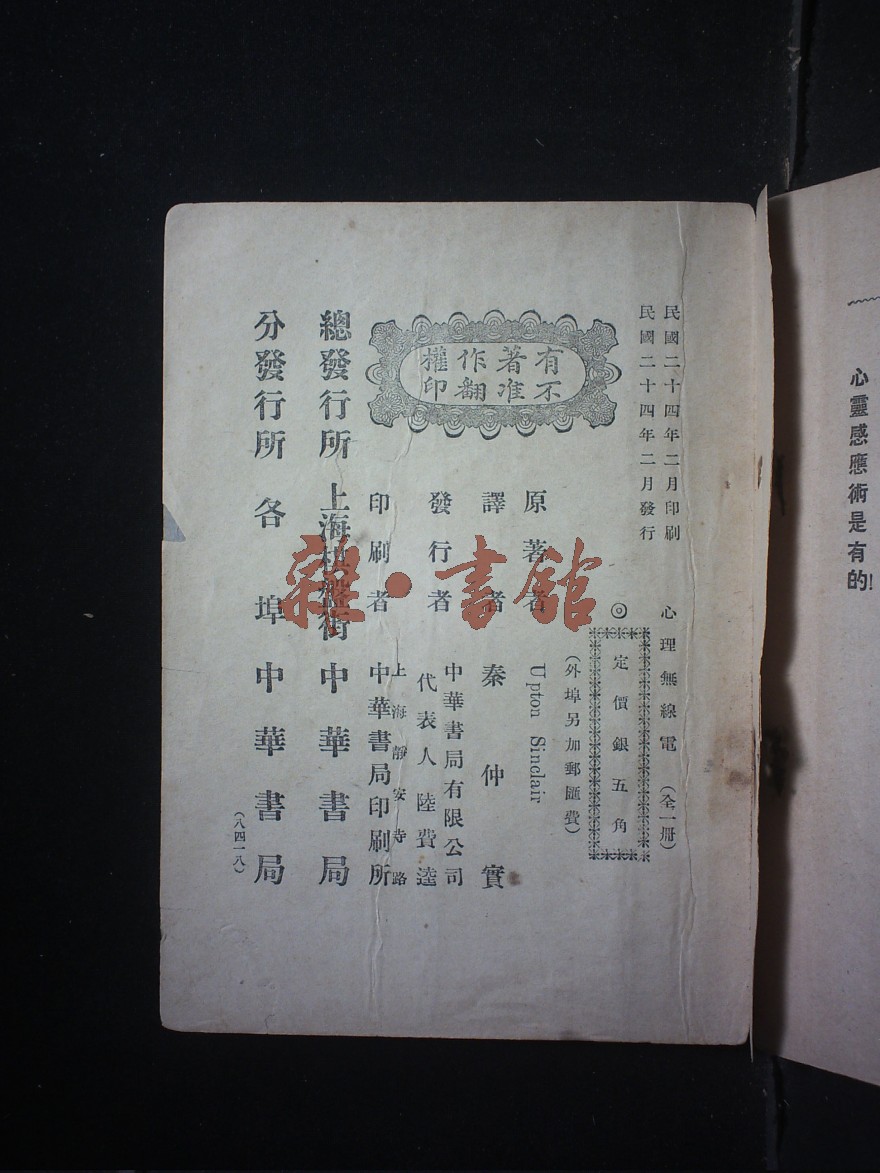 心靈感應術是有的!
民國二十四年二月印刷
民國二十四年二月發行
心理無線電(全一冊)
◎定價銀五角
(外埠另加郵匯費)
有不
著准
作翻
權印
原著者 Upton Sinclair
譯者 秦仲實
發行者 中華書局有限公司
代表人陸費逵
印刷者 上海靜安寺路
中華書局印刷所
總發行所 上海棋盤街 中華書局
分發行所 各埠中華書局
(八四一八)
雜·書館